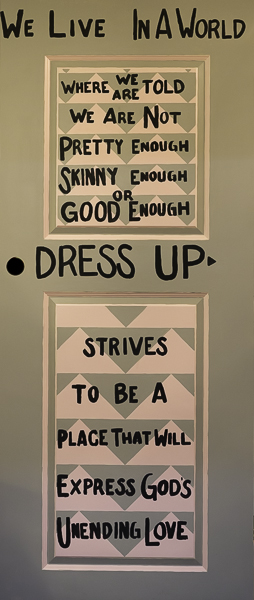 WE LIVE IN A WORLD
WHERE WE ARE TOLD
WE ARE NOT
PRETTY ENOUGH
SKINNY ENOUGH
OR
GOOD ENOUGH
DRESS UP
STRIVES
TO BE A
PLACE THAT WILL
EXPRESS GOD'S
UNENDING LOVE